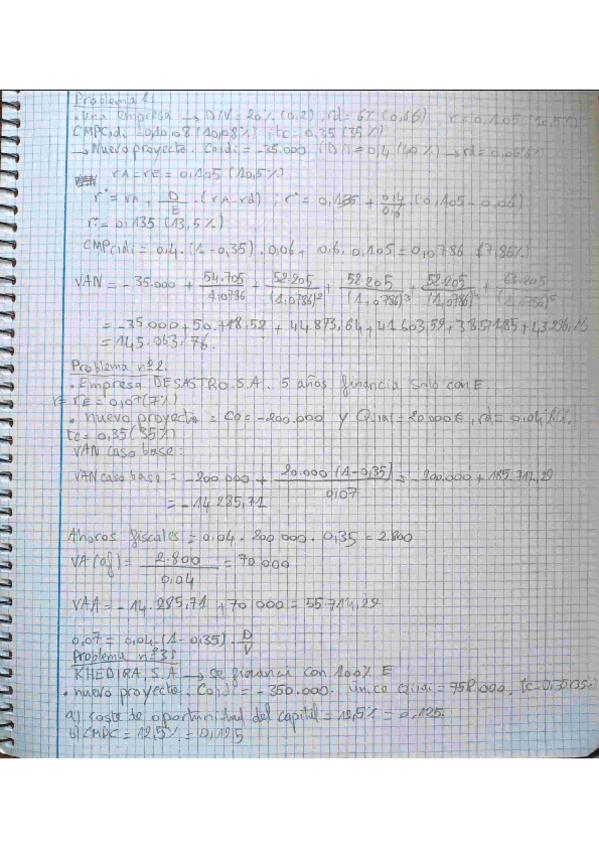 Problema 1:
• Una empresa → D/V = 20% (0,2), rd = 6% (0,06), r = 0,105 (10,5%)
CMPCidi = 0,1008 (10,08%) ; tc = 0,35 (35%)
→ Nuevo proyecto. Coidi = -35.000 (D/V = 0,4 (40%) → rd =
rA = rE = 0,105 (10,5%)
r* = rA + D/E · (rA - rd) ; r* = + 0,4/0,6 · (0,105 - 0,06)
r* = 0,135 (13,5%)
CMPCidi = 0,4 · (1 - 0,35) · 0,06 + 0,6 · 0,105 = 0,0786 (7,86%)
VAN = -35.000 + 54.705/1,0786 + 52.205/(1,0786)² + 52.205/(1,0786)³ + 52.205/(1,0786)⁴ + /(1,0786)⁵
= -35.000 + 50.718,52 + 44.873,64 + 41.603,59 +
= 145.063,76.
Problema nº2:
• Empresa DESASTRO.S.A. 5 años financia solo con E.
r = rE = 0,07 (7%)
• nuevo proyecto = Co = -200.000 y Qidi = 20.000€, rd = 0,04
tc = 0,35 (35%)
VAN caso base:
VAN caso base = -200.000 + 20.000 (1 - 0,35)/0,07 = -200.000 + 185.714,29
= -14.285,71
Ahoros fiscales = 0,04 · 200.000 · 0,35 = 2.800
VA (af) = 2.800/0,04 = 70.000
VAA = -14.285,71 + 70.000 = 55.714,29
0,07 = 0,04 · (1 - 0,35) · D/V
Problema nº3:
KHEDIRA, S.A → se financi con 100% E
• nuevo proyecto. Coidi = -350.000. único Qidi = 758.000, tc = 0,35
a) coste de oportunidad del capital = 12,5% = 0,125.
b) CMPC = 12,5% = 0,125